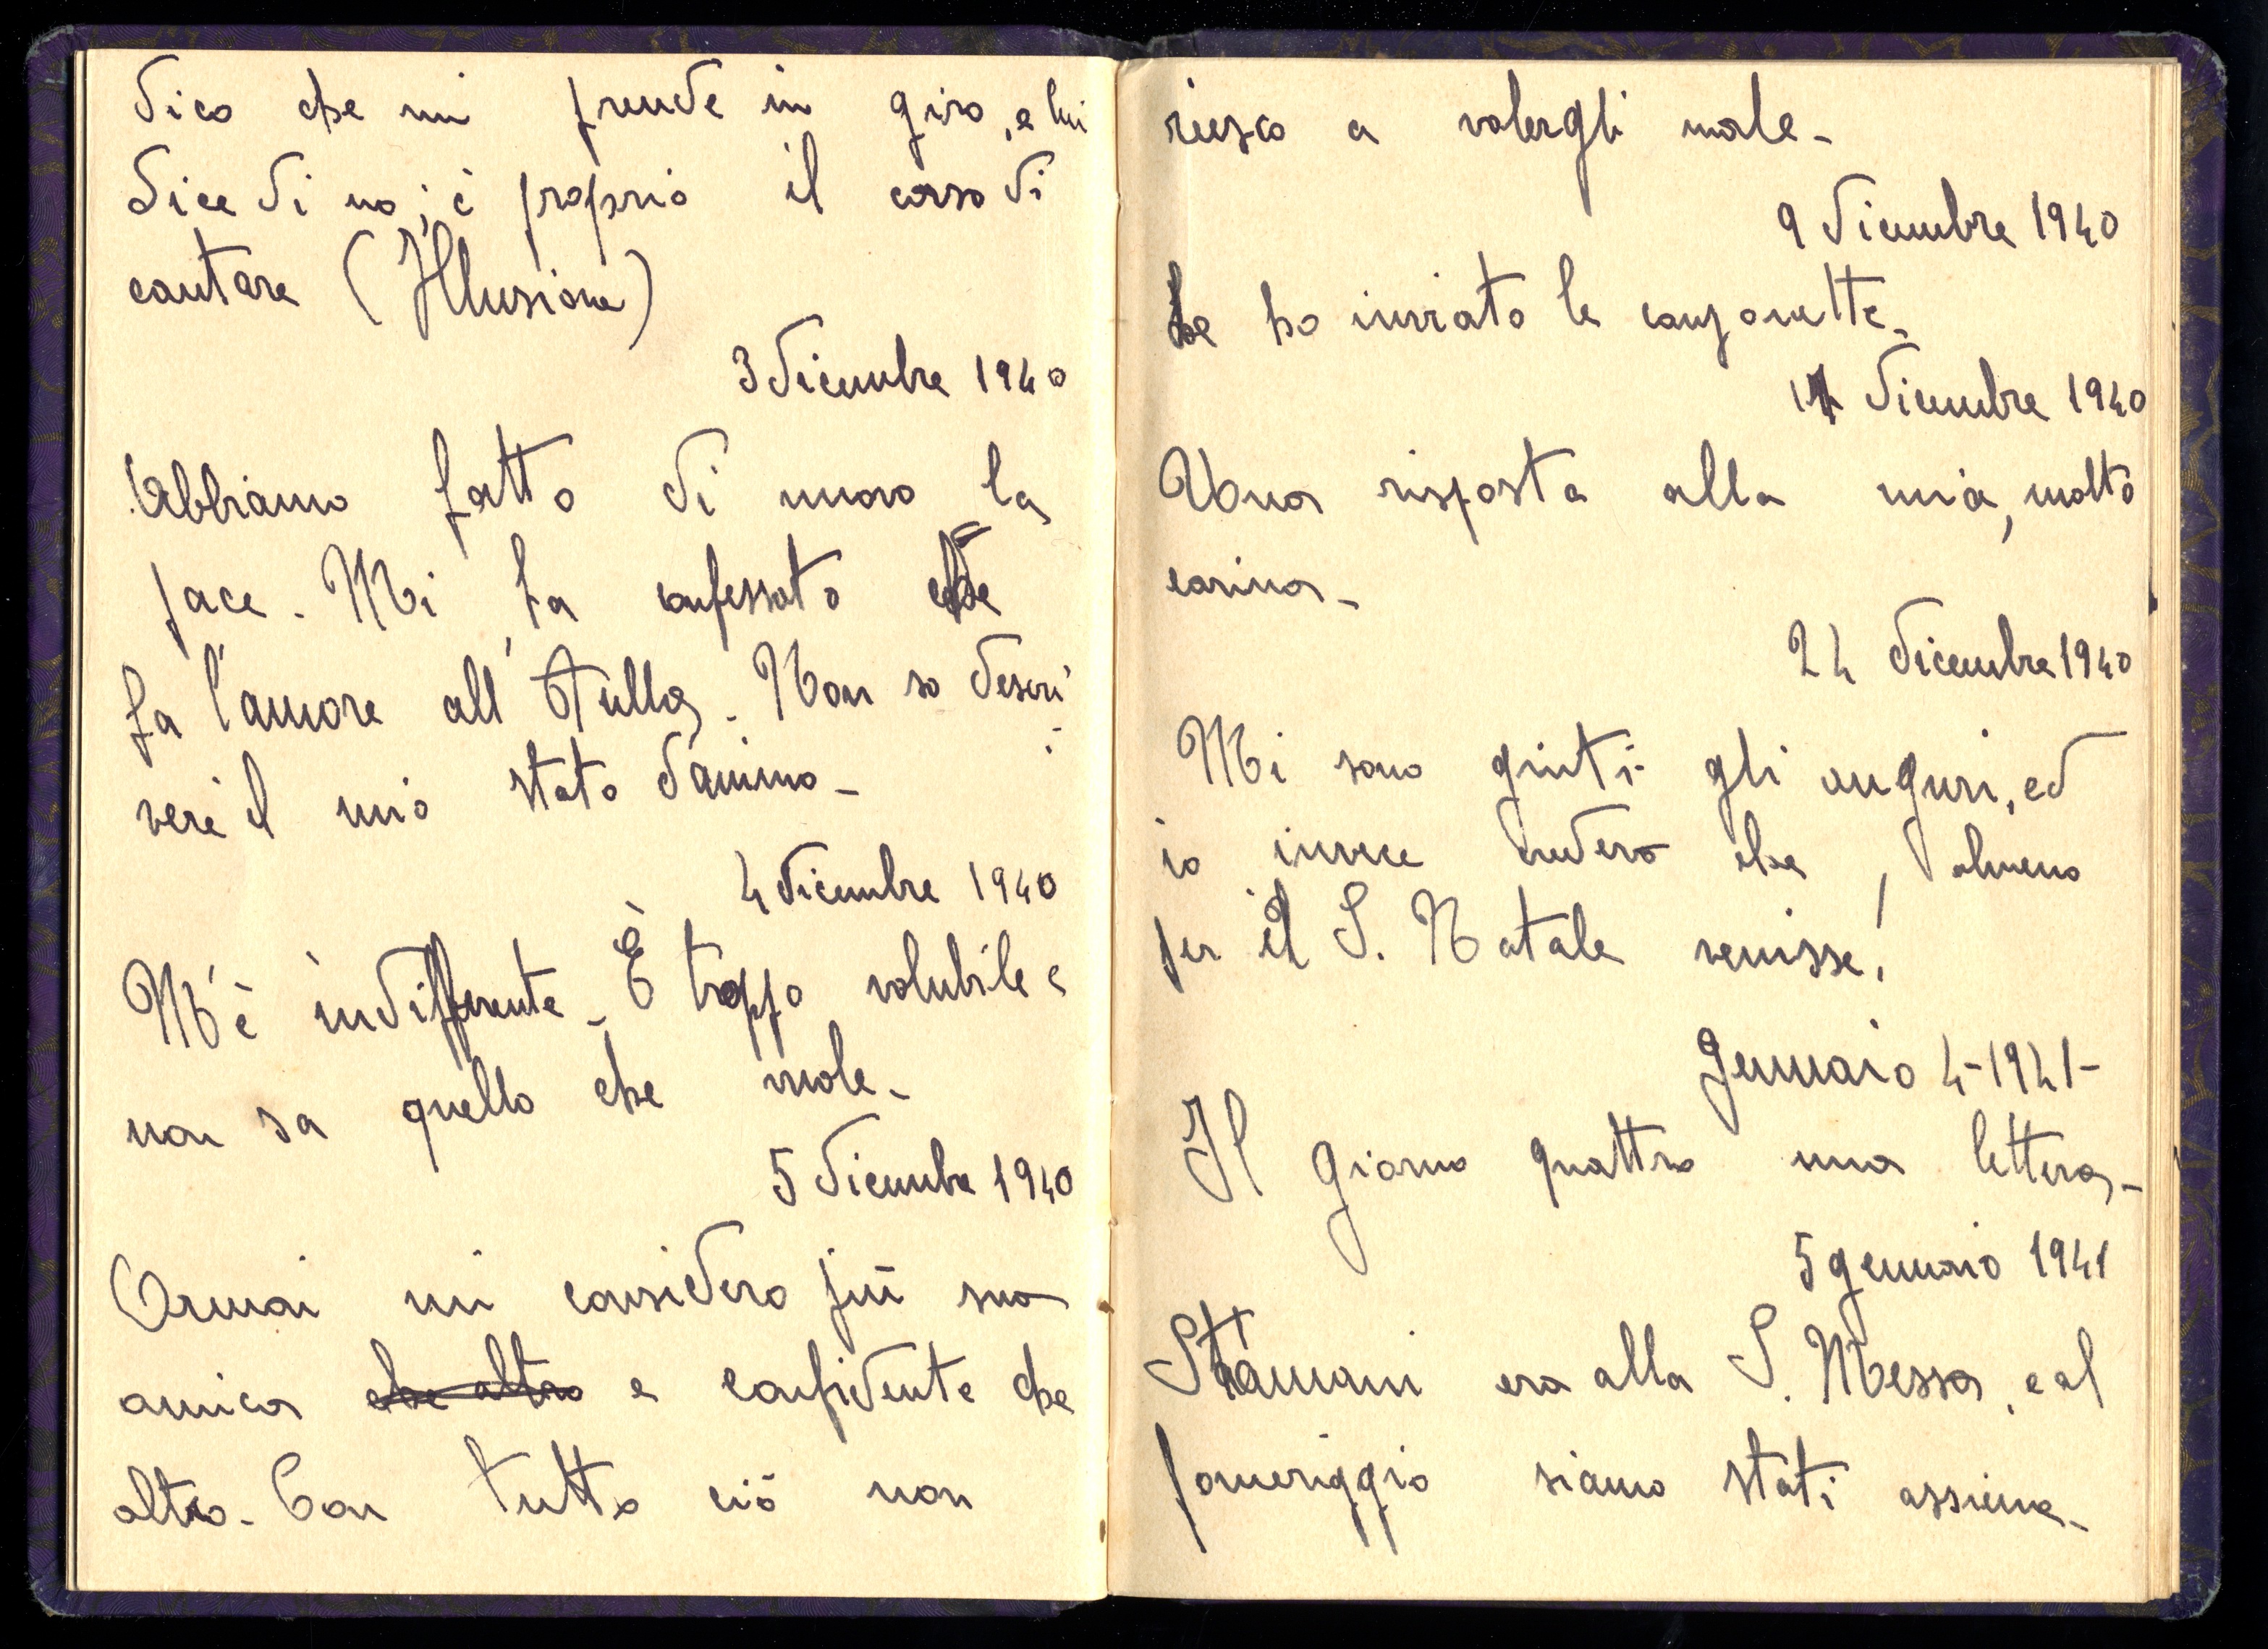 dico che mi prende in giro, e lui
dice di no; è proprio il caso di
cantare (Illusione)
3 dicembre 1940
Abbiamo fatto di nuovo la
pace. Mi ha confessato che
fa l'amore all'Tulla. Non so descri
vere il mio stato d'animo -
4 dicembre 1940
M'è indifferente - È troppo volubile e
non sa quello che vuole -
5 dicembre 1940
Ormai mi considero più sua
amica che altro e confidente che
altro - Con tutto ciò non
riesco a volergli male -
9 dicembre 1940
Le ho inviato le canzonette -
dicembre 1940
Una risposta alla mia, molto
carina -
24 dicembre 1940
Mi sono giunti gli auguri, ed
io invece credevo che, almeno
per il S. Natale venisse!
Gennaio 4-1941-
Il giorno quattro una lettera -
5 gennaio 1941
Stamani era alla S. Messa, e al
pomeriggio siamo stati assieme -